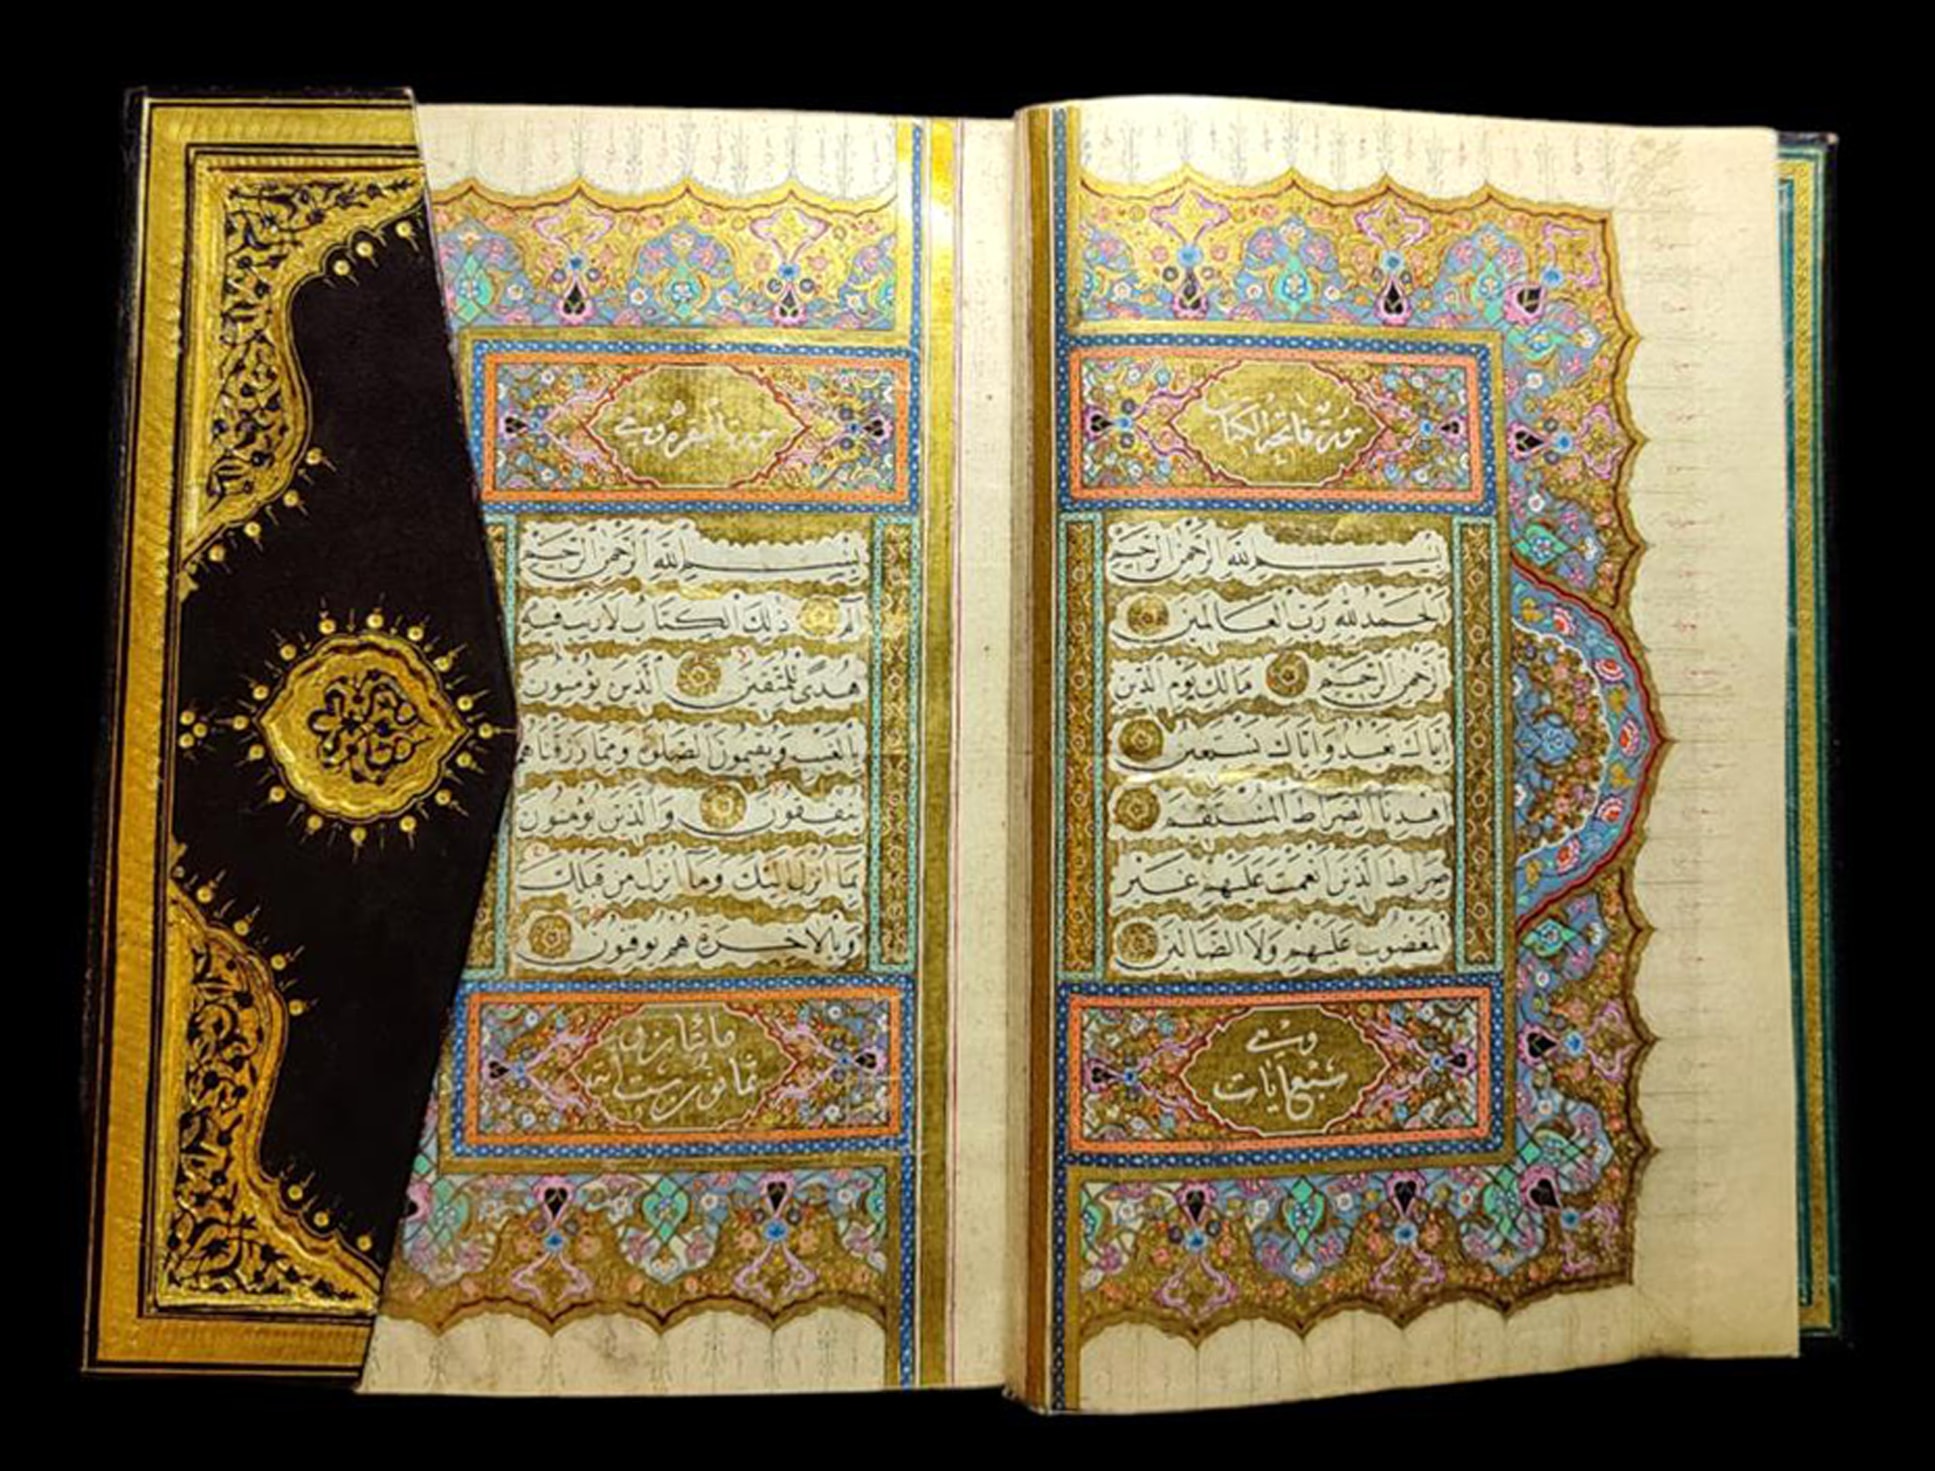 سورة فاتحة الكتاب
بسم الله الرحمن الرحيم
الحمد لله رب العالمين
الرحمن الرحيم مالك يوم الدين
اياك نعبد واياك نستعين
اهدنا الصراط المستقيم
صراط الذين انعمت عليهم غير
المغضوب عليهم ولا الضالين
وهي
سبع ايات
سورة البقرة وهي
بسم الله الرحمن الرحيم
الم ذلك الكتاب لا ريب فيه
هدى للمتقين الذين يؤمنون
بالغيب ويقيمون الصلوة ومما رزقناهم
ينفقون والذين يؤمنون
بما انزل اليك وما انزل من قبلك
وبالاخرة هم يوقنون
مائتان و
ثمانون ست ايات